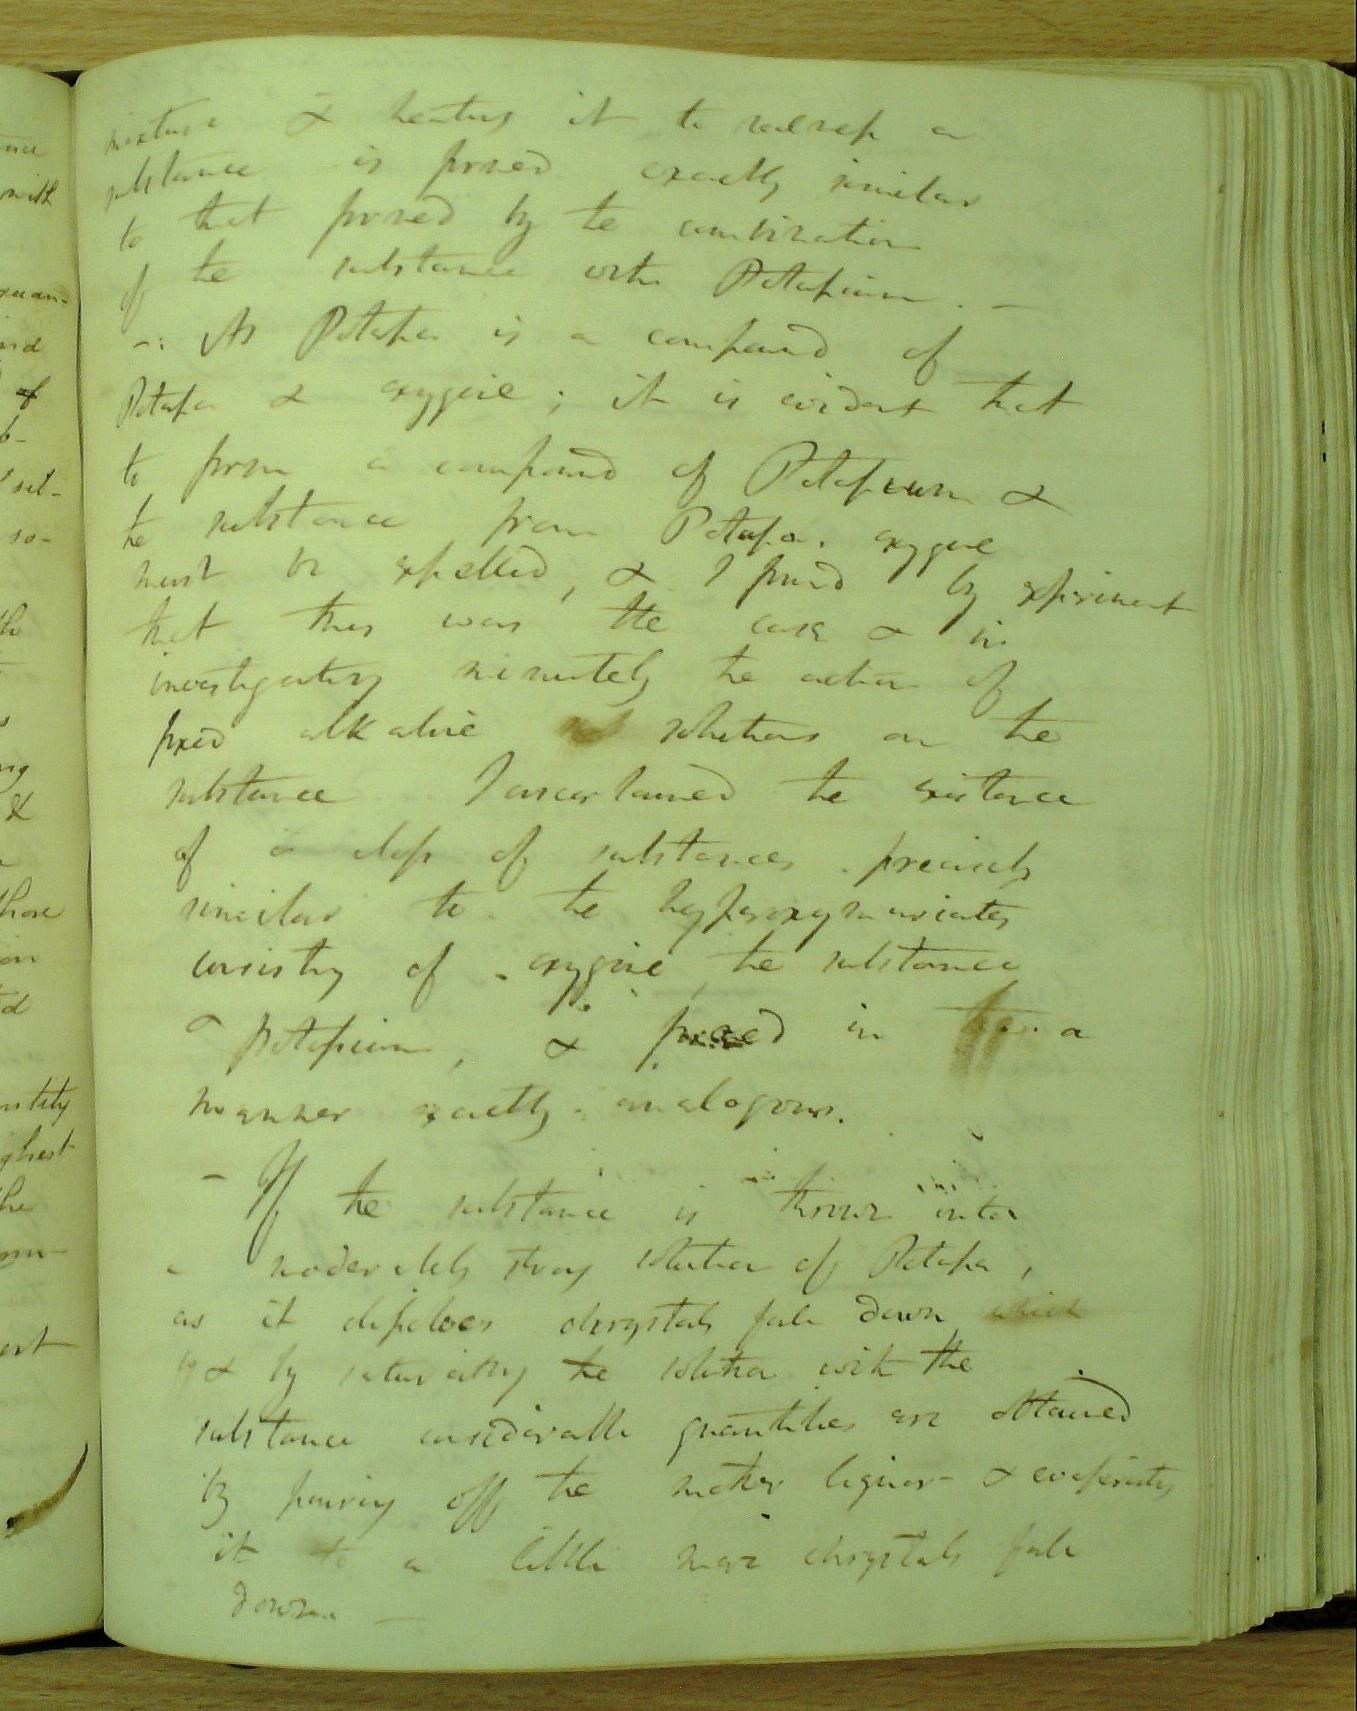 mixture & heating it to redness a
substance is formed exactly similar
to that formed by the combination
of the substance with Potassium. —
—: As Potassa is a compound of
Potassa & oxygene; it is evident that
to form a compound of Potassium &
the substance from Potassa. oxygene
must be expelled, & I found by experiment
that this was the case & in
investigating minutely the action of
fixed alkaline solutions on the
substance I ascertained the existence
of a class of substances precisely
similar to the hyperoxymuriates
consisting of oxygene, the substance
& Potassium, & formed in a
manner exactly analogous.
— If the substance is thrown into
a moderately strong solution of Potassa,
as it dissolves chrystals fall down which
& by saturating the solution with the
substance considerable quantities are obtained
by pouring off the mother liquor & evaporating
it to a little more chrystals fall
down —
nce
with
quan-
and
of
b-
sol-
so-
th
s
ng
&
those
on
ed
ntity
ghest
the
om-
ert